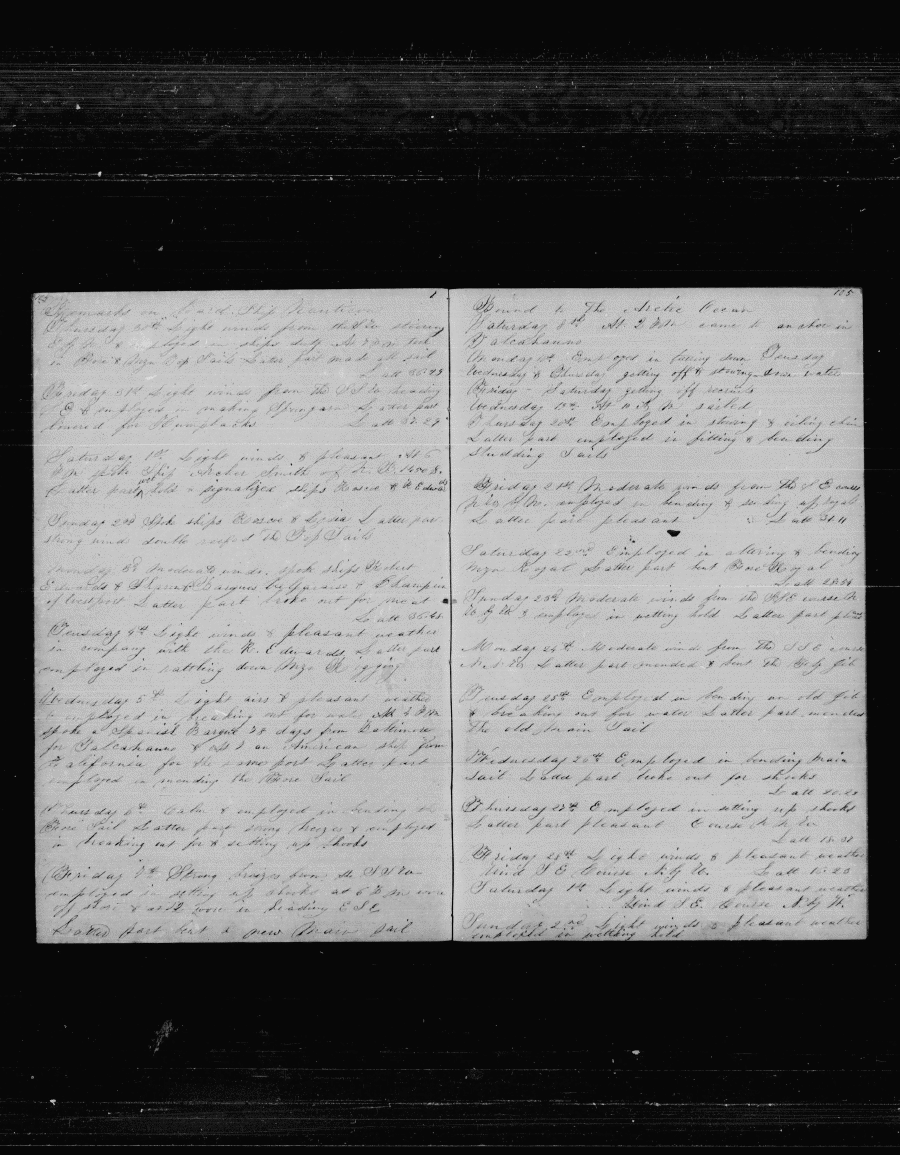 Remarks on Board Ship Nautilus
Thursday 30th Light winds from the steering
E by N & employed in ships duty At 7 PM took
in Fore & Mizn Top Sails Latter part made all sail
Latt 36.43
Friday 31st Light winds from the SSW heading
& employed in making Spunyarn Latter part
lowered for Humpbacks Latt 37.27
Saturday 1st Light winds & pleasant At 6
PM spoke Ship Archer Smith of N.B. 1400 B.
Latter part wet hold & signalized ships Roscoe & R Edwards
Sunday 2nd Spoke ships Roscoe & Lydia Latter part
strong winds double reefed the Top Sails
Monday 3d moderate winds spoke ships Robert
Edwards & Barques & Champion
of Westport Latter part broke out for meat
Latt 36.
Tuesday 4th Light winds & pleasant weather
in company with the R. Edwards Latter part
employed in rattling down Mizn Rigging
Wednesday 5th Light airs & pleasant weather
& employed in breaking out for water At 3 PM
spoke a Spanish Barque 78 days from Baltimore
for Talcahuano & at an American ship from
California for the same port Latter part
employed in mending the Fore Sail
Thursday 6th Calm & employed in bending the
Fore Sail Latter part strong breezes & employed
in breaking out for & setting up shooks
Friday 7th Strong breezes from the SSW
employed in setting up shooks at 6 PM wore
off shore & at 12 wore in heading ESE
Latter part bent a new Main Sail
105
Bound to The Arctic Ocean
Saturday 8th At 3 PM came to anchor in
Talcahuano
Monday 10th Employed in towing down Tuesday
Wednesday & Thursday getting off & stowing down water
Friday Saturday getting off recruits
Wednesday 19th At 11 AM sailed
Thursday 20th Employed in stowing & coiling chain
Latter part employed in fitting & bending
Studding Sails
Friday 21st Moderate winds from the S E course
NW by N. employed in bending & sending up royals
Latter part pleasant Latt 31.11
Saturday 22nd Employed in altering & bending
Mizn Royal Latter part bent Fore Royal
Latt 28.54
Sunday 23d Moderate winds from the SSE course N
W by N & employed in wetting hold Latter part pleasant
Monday 24th Moderate winds from the SSE course
N.N.W. Latter part mended & bent the Fly Jib
Tuesday 25th Employed in bending an old Jib
& breaking out for water Latter part mended
the old Main Sail
Wednesday 26th Employed in bending Main
Sail Ladd part broke out for shooks
Latt 20.23
Thursday 27th Employed in setting up shooks
Latter part pleasant Course N.N.W.
Latt 18.
Friday 28th Light winds & pleasant weather
Wind S.E. Course N by W. Latt 16.23
Saturday 1st Light winds & pleasant weather
Wind S.E. Course N by W.
Sunday 2nd Light winds & pleasant weather
employed in wetting hold